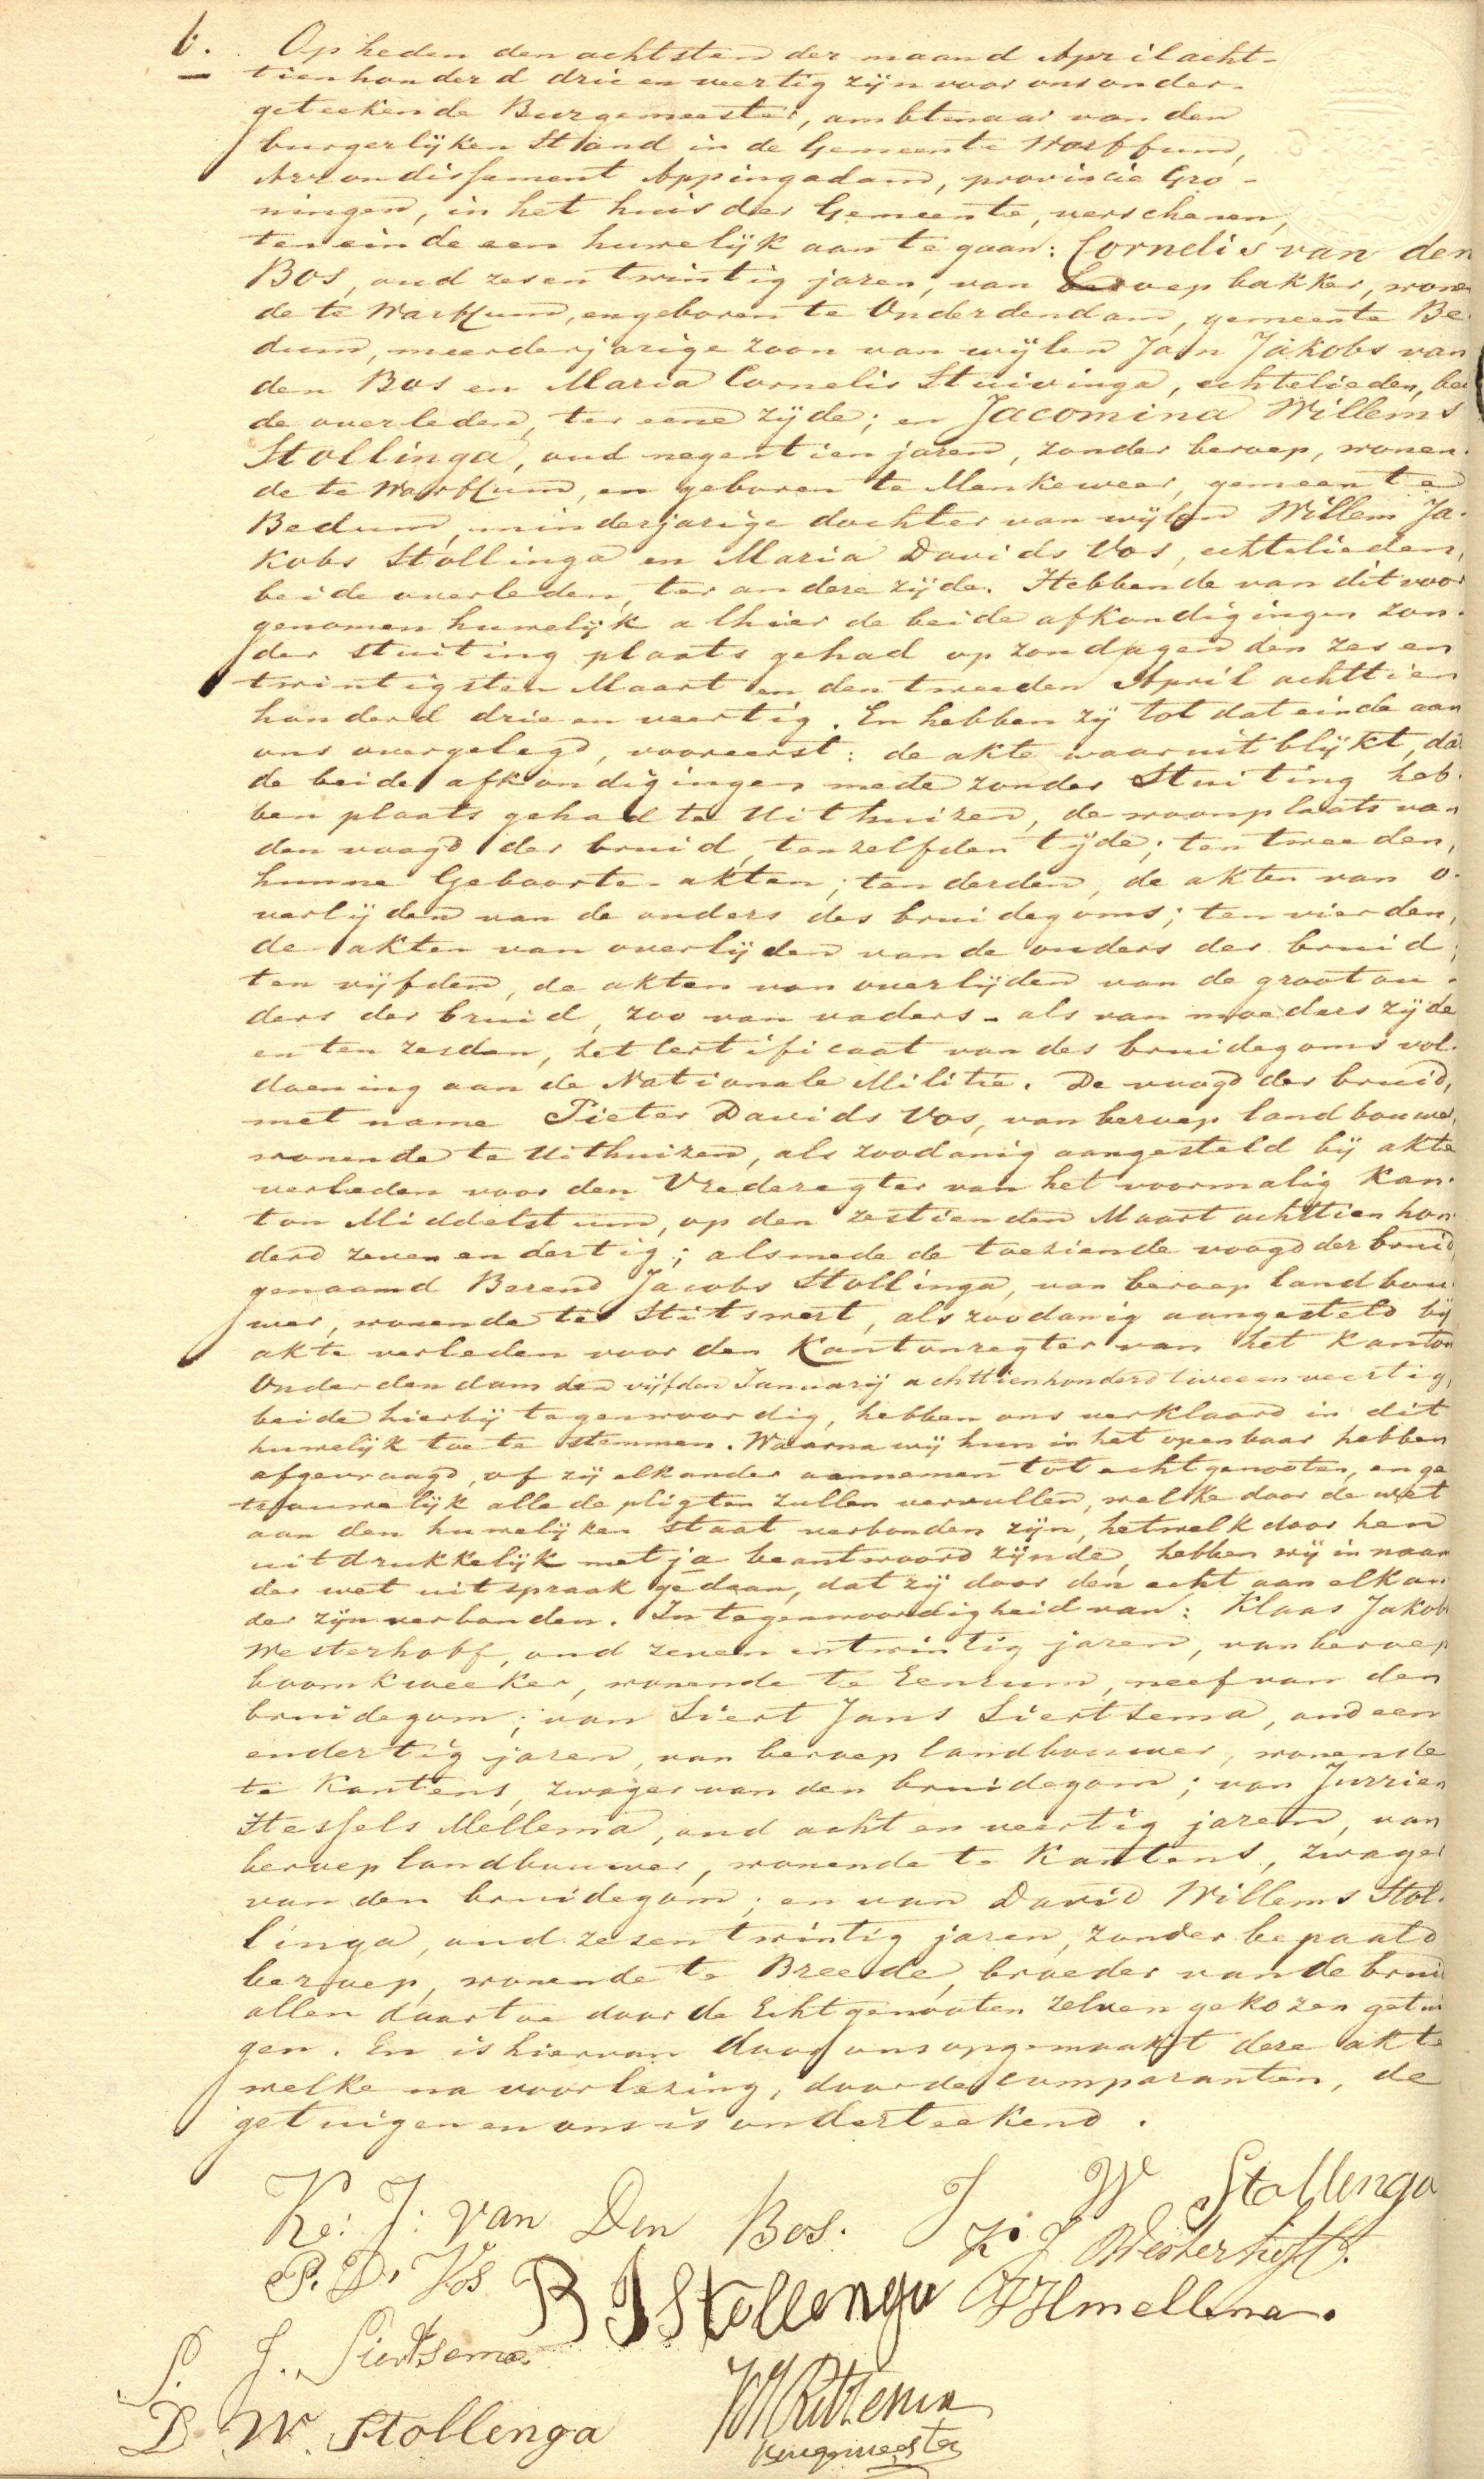 6. Op heden den achtsten der maand April acht-
tienhonderd drie en veertig zijn voor ons onder-
geteekende Burgemeester, ambtenaar van den
burgerlijken Stand in de Gemeente Warffum,
Arrondissement Appingadam, provincie Gro-
ningen, in het huis der Gemeente, verschenen,
ten einde een huwelijk aan te gaan: Cornelis van den
Bos, oud zesentwintig jaren, van beroep bakker, wonen
de te Warffum, en geboren te Onderdendam, gemeente Be-
dum, meerderjarige zoon van wijlen Jan Jakobs van
den Bos en Maria Cornelis Stuivinga, echtelieden, bei
de overleden, ter eene zijde; en Jacomina Willems
Stollinga, oud negentien jaren, zonder beroep, wonen-
de te Warffum, en geboren te Menkeweer, gemeente
Bedum, minderjarige dochter van wijlen Willem Ja-
kobs Stollinga en Maria Davids Vos, echtelieden,
beide overleden, ter andere zijde. Hebbende van dit voor
genomen huwelijk alhier de beide afkondigingen zon-
der stuiting plaats gehad op zondagen den zes en
twintigsten Maart en den tweeden April achttien
honderd drie en veertig. En hebben zij tot dat einde aan
ons overgelegd, vooreerst: de akte waaruit blijkt, dat
de beide afkondigingen mede zonder Stuiting heb-
ben plaats gehad te Uithuizen, de woonplaats van
den voogd der bruid, tenzelfden tijde; ten tweeden,
hunne Geboorte-akten; ten derden, de akten van o-
verlijden van de ouders des bruidegoms; ten vierden,
de akten van overlijden van de ouders der bruid;
ten vijfden, de akten van overlijden van de grootou-
ders der bruid, zoo van vaders- als van moeders zijde
en ten zesden, het certificaat van des bruidegoms vol-
doening aan de Nationale Militie. De voogd der bruid,
met name Pieter Davids Vos, van beroep landbouwer,
wonende te Uithuizen, als zoodanig aangesteld bij akte
verleden voor den Vrederegter van het voormalig Kan-
ton Middelstum, op den zestienden Maart achttien hon-
derd zeven en dertig; alsmede de toeziende voogd der bruid,
genaamd Berend Jacobs Stollinga, van beroep landbou-
wer, wonende te Stitswert, als zoodanig aangesteld bij
akte verleden voor den Kantonregter van het Kanton
Onderdendam den vijfden Januarij achttienhonderd twee en veertig,
beide hierbij tegenwoordig, hebben ons verklaard in dit
huwelijk toe te stemmen. Waarna wij hun in het openbaar hebben
afgevraagd, of zij elkander aannemen tot echtgenooten, en ge
trouwelijk alle de pligten zullen vervullen, welke door de wet
aan den huwelijken staat verbonden zijn, hetwelk door hen
uitdrukkelijk met ja beantwoord zijnde, hebben wij in naam
der wet uitspraak gedaan, dat zij door den echt aan elkan
der zijn verbonden. In tegenwoordigheid van: Klaas Jakobs
Westerhoff, oud zeven entwintig jaren, van beroep
boomkweeker, wonende te Eenrum, neef van den
bruidegom; van Siert Jans Siertsema, oud een
en dertig jaren, van beroep landbouwer, wonende
te Kantens, zwager van den bruidegom; van Jurrien
Hessels Mellema, oud acht en veertig jaren, van
beroep landbouwer, wonende te Kantens, zwager
van den bruidegom; en van David Willems Stol-
linga, oud zesentwintig jaren, zonder bepaald
beroep, wonende te Breede, broeder van de bruid
allen daartoe door de Echtgenooten zelven gekozen getui
gen. En is hiervan door ons opgemaakt deze akte
welke na voorlezing, door de comparanten, de
getuigen en ons is onderteekend.
Ks: J: van Den Bos. J W Stollenga
P. D. Vos B J Stollenga K. J Westerhoff.
J H mellema.
S. J. Siertsema
D W. Stollenga
Burgemeester